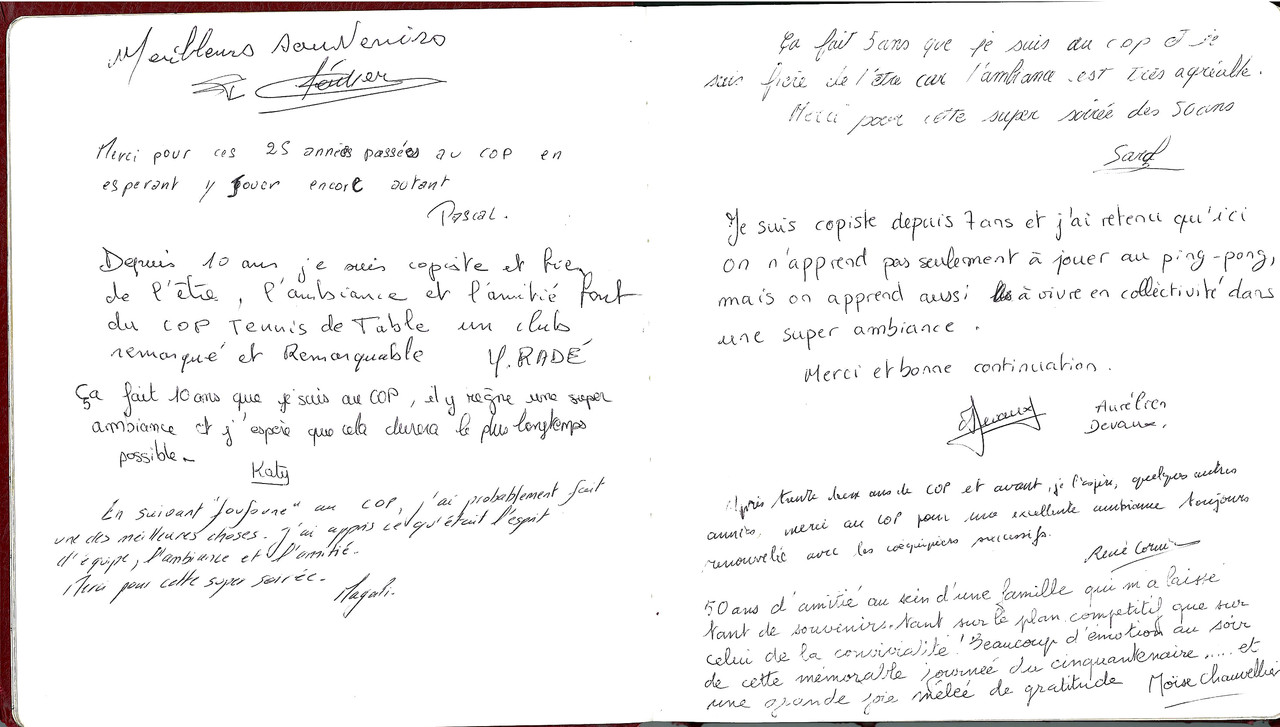 Meilleurs souvenirs
Merci pour ces 25 années passées au COP en
esperant y jouer encore autant
Pascal.
Depuis 10 ans je suis copiste et fier
de l'être, l'ambiance et l'amitié font
du COP Tennis de Table un club
remarqué et Remarquable Y. RADÉ
Ça fait 10 ans que je suis au COP, il y règne une super
ambiance et j'espère que cela durera le plus longtemps
possible.
Katy
En suivant "Joufoune" au COP, j'ai probablement fait
une des meilleures choses. J'ai appris ce qu'était l'esprit
d'équipe, l'ambiance et l'amitié.
Merci pour cette super soirée.
Magali.
Ça fait 5 ans que je suis au COP et je
suis fière de l'être car l'ambiance est très agréable.
Merci pour cette super soirée des 50 ans
Je suis copiste depuis 7 ans et j'ai retenu qu'ici
on n'apprend pas seulement à jouer au ping-pong,
mais on apprend aussi à vivre en collèctivité dans
une super ambiance.
Merci et bonne continuation.
Devaux Aurélien
Devaux.
Après trente deux ans de COP et avant, je l'espère, quelques autres
années, merci au COP pour une excellente ambiance toujours
renouvelée avec les coéquipiers successifs.
René
50 ans d'amitié au sein d'une famille qui m'a laissé
tant de souvenirs. tant sur le plan compétitif que sur
celui de la convivialité ! Beaucoup d'émotion au soir
de cette mémorable journée du cinquantenaire..... et
une grande joie mêlée de gratitude Moïse Chauvellier